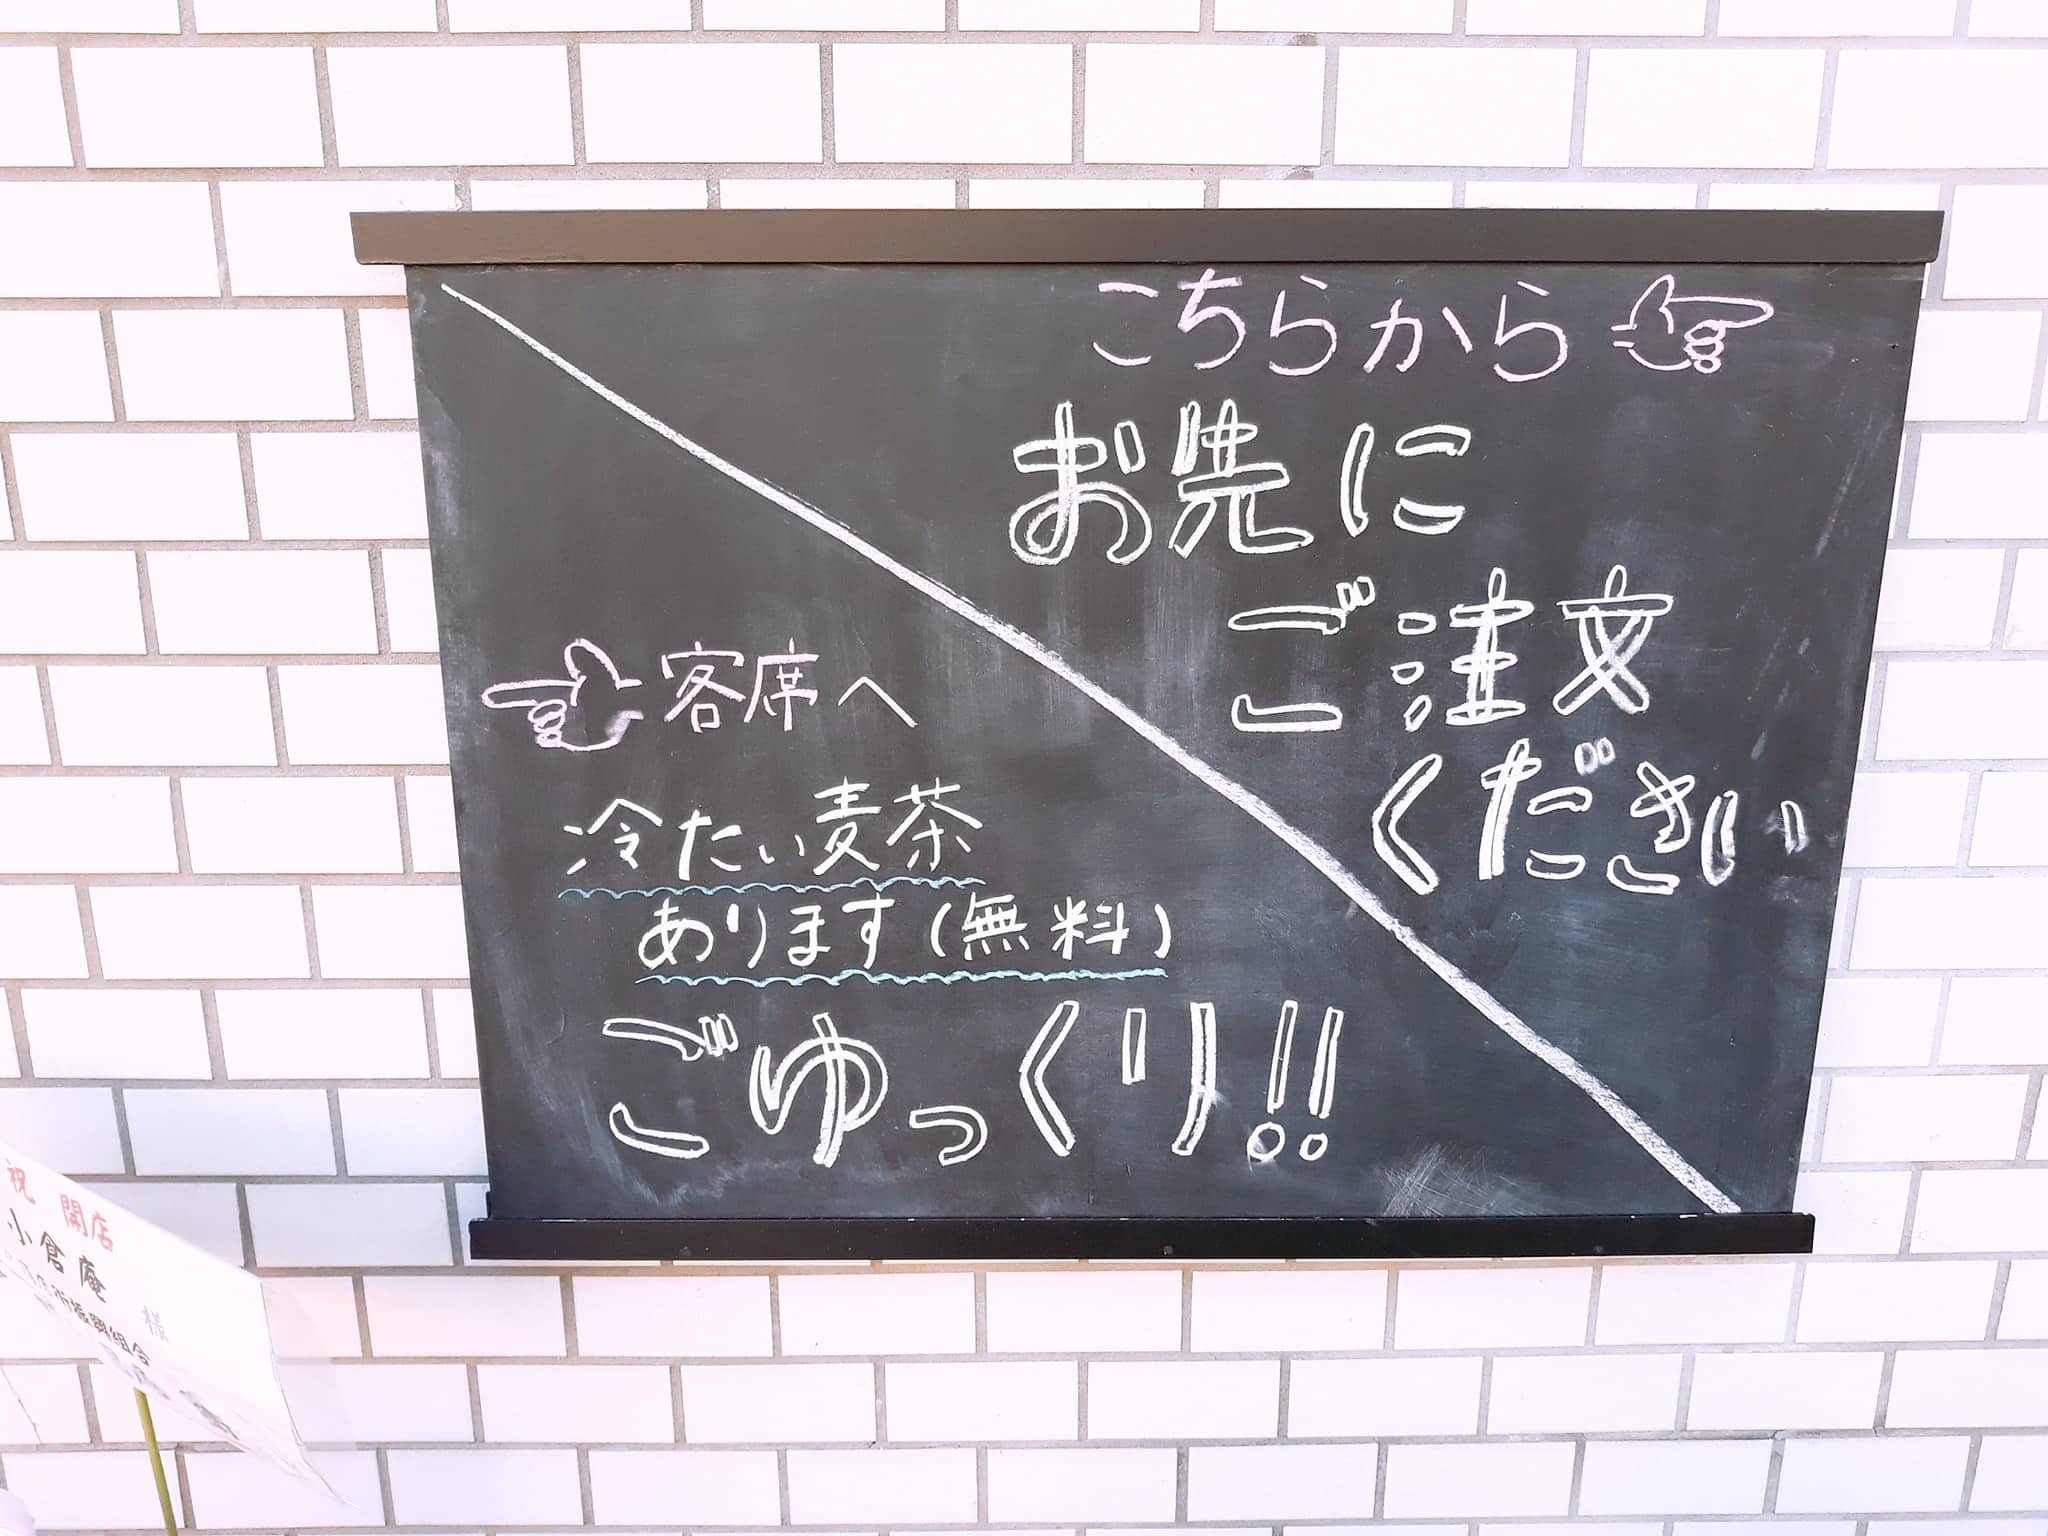 こちらから
お先に
ご注文
ください
客席へ
冷たい麦茶
あります(無料)
ごゆっくり!!
祝 開店
小倉庵 様
振興組合